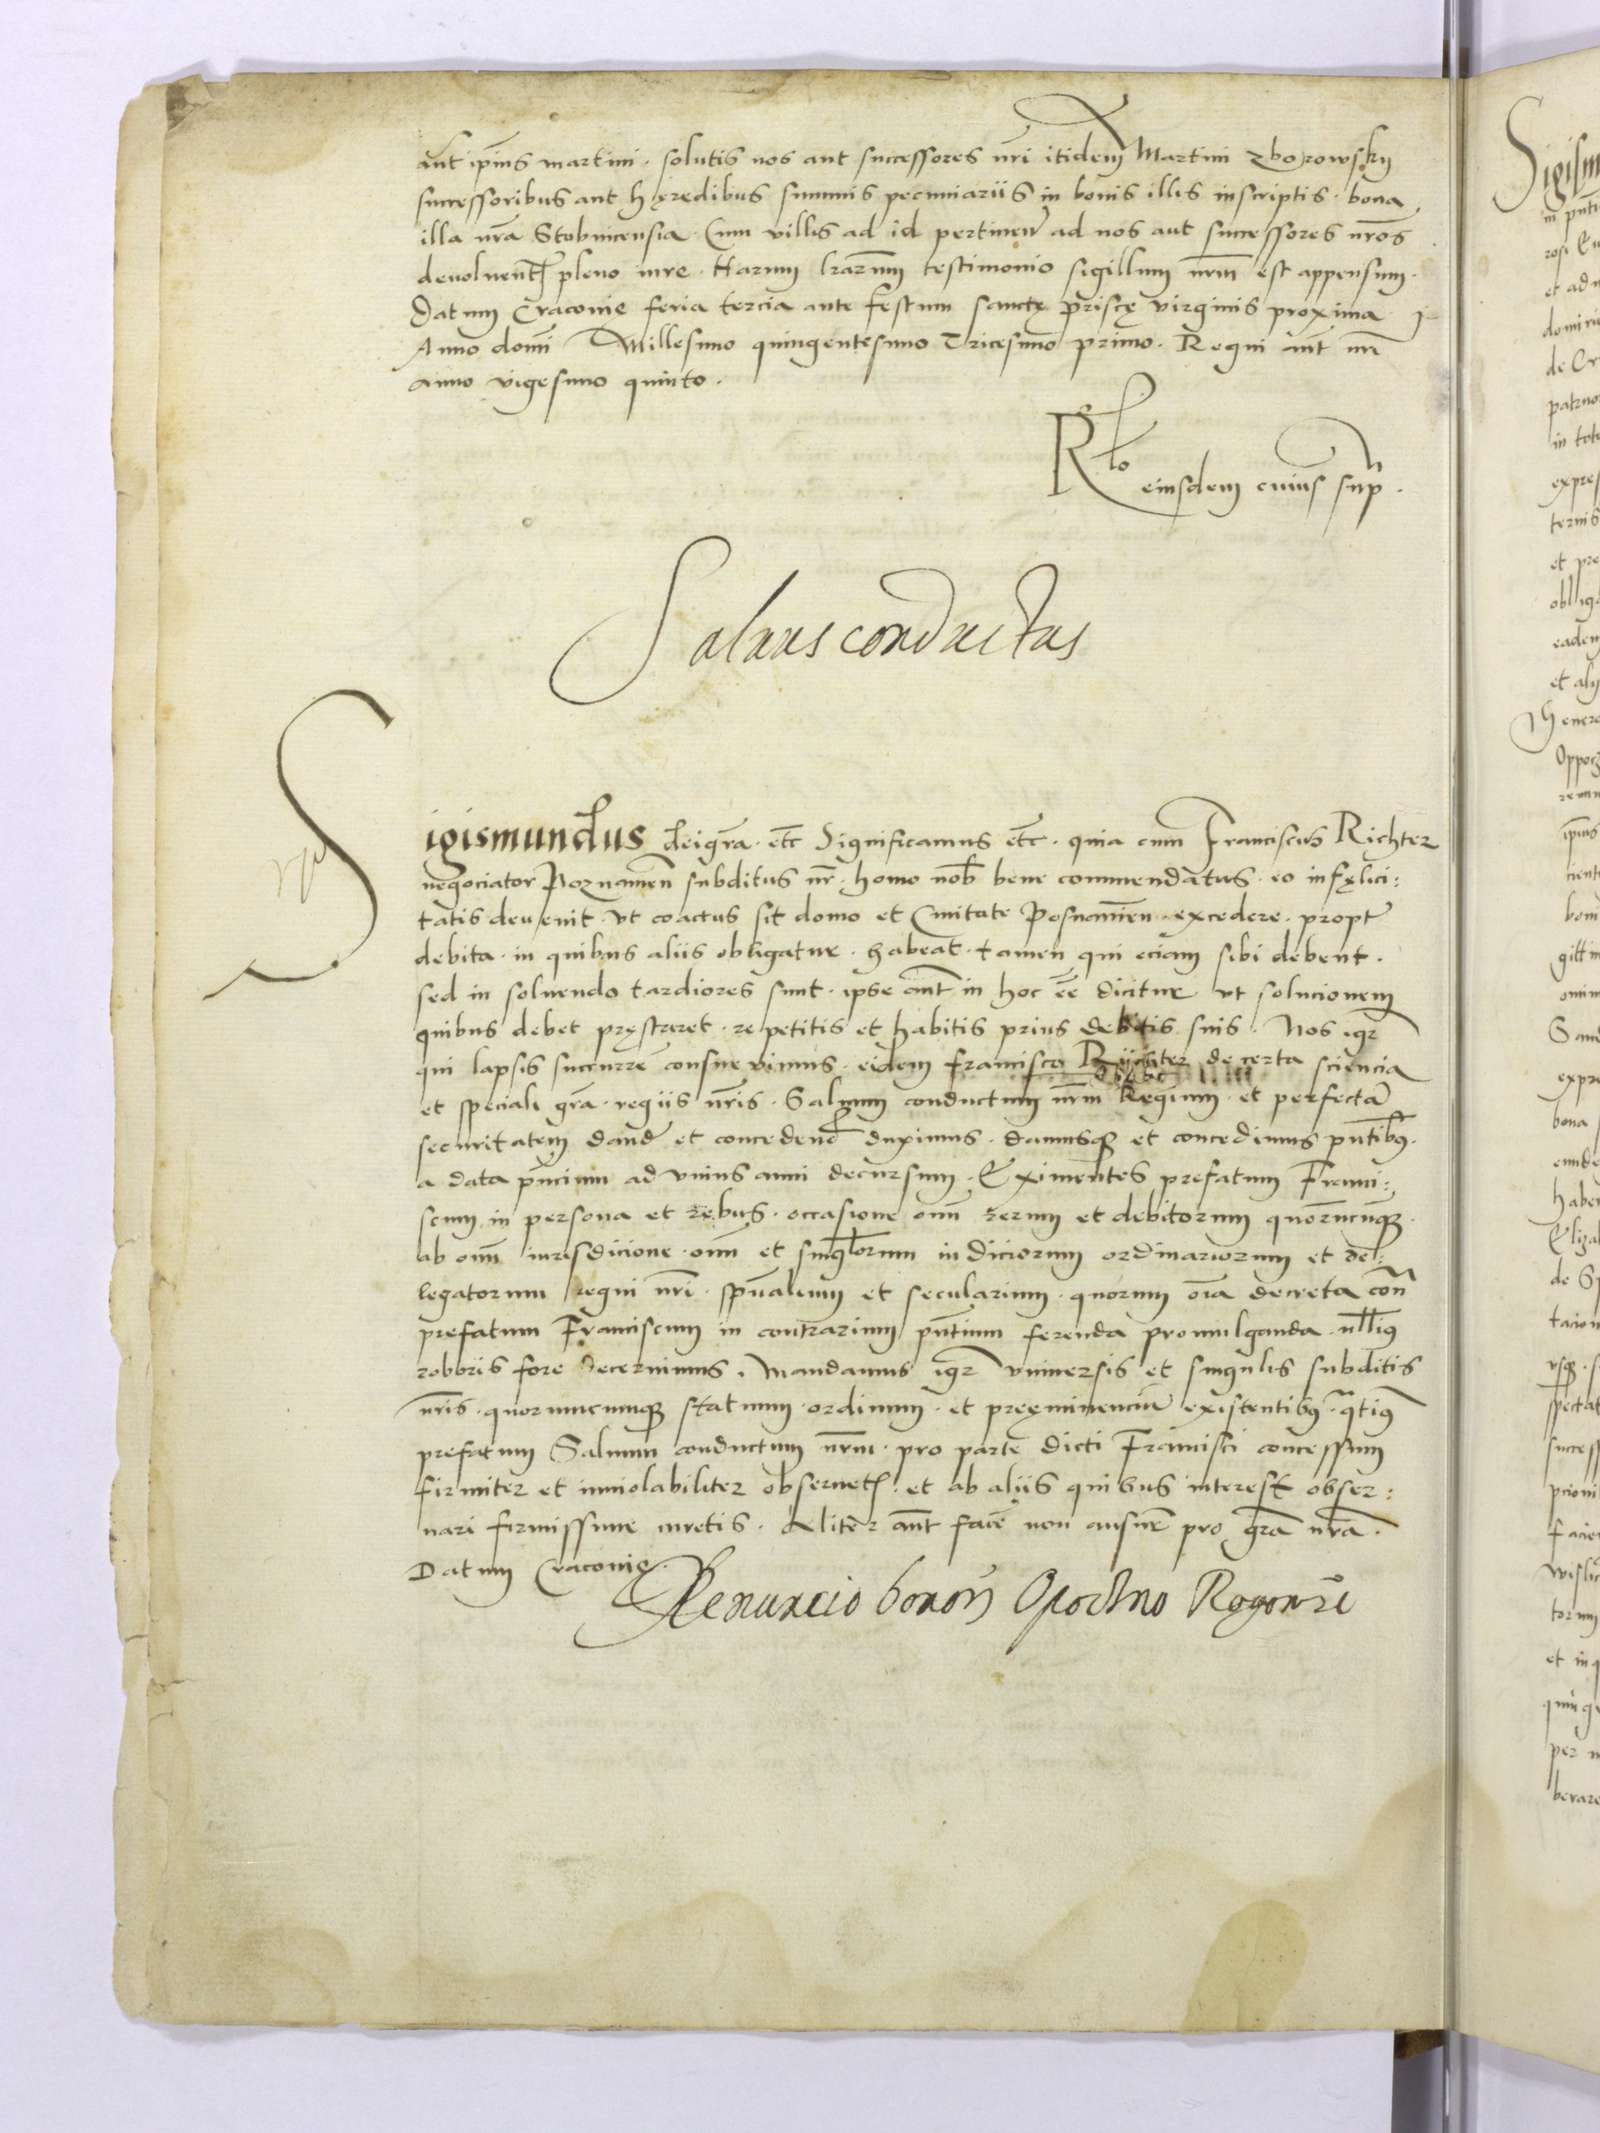 aut ipsius martini. solutis nos aut successores nri itidem Martini Zborowsky
successoribus aut hęredibus summis pecuniariis in bonis illis inscriptis. bona
illa nra Stobnicensia. Cum villis ad id pertinen ad nos aut successores nros
devoluentr pleno iure. Harum lrarum testimonio sigillum nrm est appensum.
Datum Cracovie feria tercia ante festum sanctę priscę virginis proxima
Anno domi Millesimo quingentesimo Tricesimo primo. Regni aut nri
anno vigesimo quinto.
Rlo eiusdem cuius sup.
Saluus conductus
Sigismundus dei gra. etc Significamus etc. quia cum Franciscus Richter
negociator Poznanien subditus nr. homo nob bene commendatus. eo infęlici:
tatis devenit. vt coactus sit domo et Ciuitate Posnanien. excedere. propter
debita. in quibus aliis obligatur. habeat. tamen qui eciam sibi debent.
sed in soluendo tardiores sunt. ipse aut in hoc ee dicitur vt solucionem
quibus debet pręstaret. repetitis et habitis prius debitis suis. Nos igr
qui lapsis succurre consuevimus. eidem francisco Richter de certa sciencia
et speciali gra. regiis nris. Saluum conductum nrm Regium. et perfecta
securitatem dand et concedend duximus. damusq et concedimus pntibus.
a data pncium ad vnius anni decursum. Eximentes prefatum Franci:
scum in persona et rebus. occasione omn rerum et debitorum quorumcunq.
ab omni iurisdicione. omn et singlorum iudiciorum ordinariorum et de:
legatorum regni nri. spualium et secularium. quorum oia decreta con
prefatum Franciscum in contrarium pntium ferenda promulganda. nllius
roboris fore decernimus. Mandamus igr vniversis et singulis subditis
nris. quorumcumq statuum. ordinum. et pręeminencia existentibus. qtius
prefatum Saluum conductum nrm. pro parte dicti Francisci concessum
firmiter et inuiolabiliter observetis. et ab aliis quibus interest obser:
uari firmissime curetis. Aliter aut face non ausure pro gra nra.
Datum Cracovie.
Renuncio bonor Opoczno Rogow